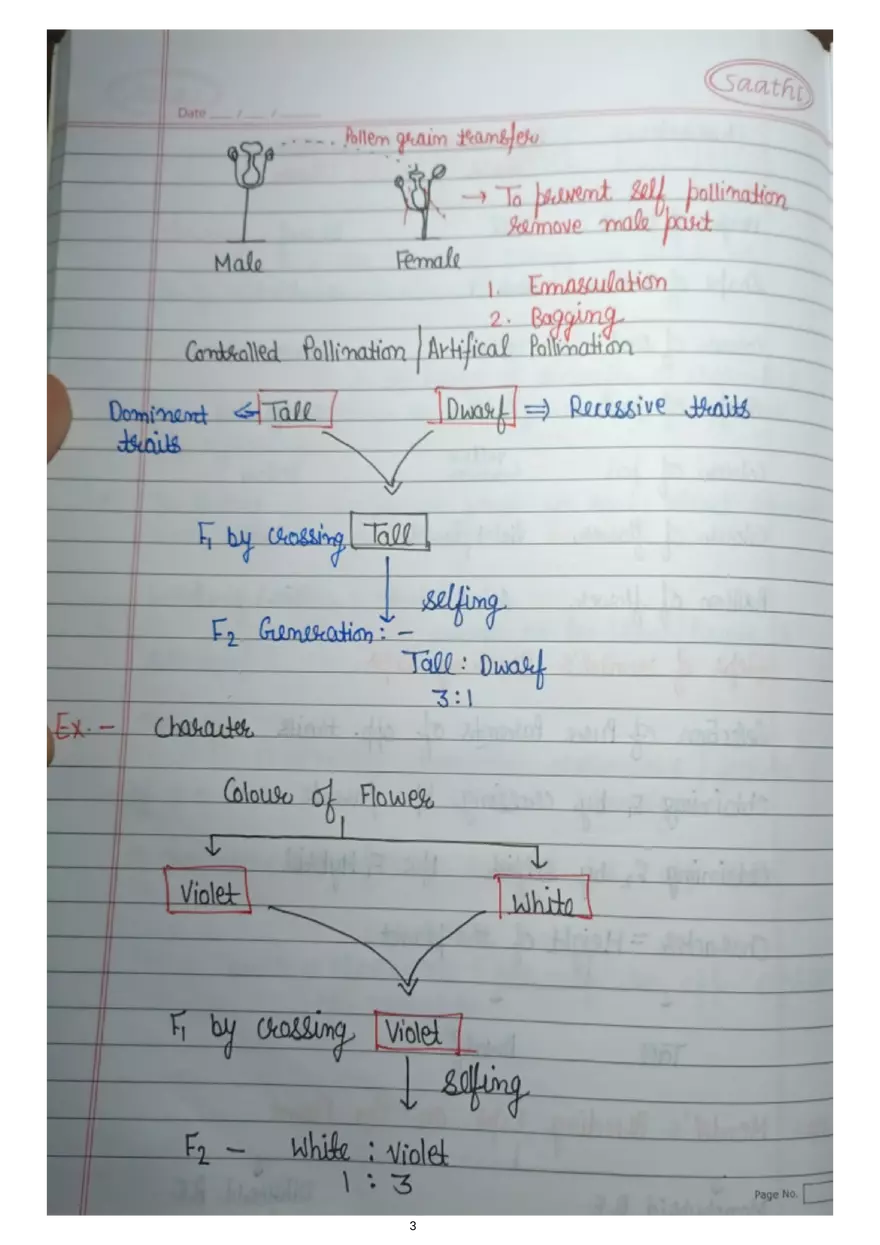 Saathi
Date __ / __ / ____
Pollen grain transfer
→ To prevent self pollination
remove male part
Male
Female
1. Emasculation
2. Bagging
Controlled Pollination / Artifical Pollination
Dominent traits ⇐ Tall
Dwarf ⇒ Recessive traits
F₁ by crossing Tall
selfing
F₂ Generation: -
Tall : Dwarf
3:1
Ex. - Character
Colour of Flower
Violet
White
F₁ by crossing Violet
selfing
F₂ - White : Violet
1 : 3
Page No.
3